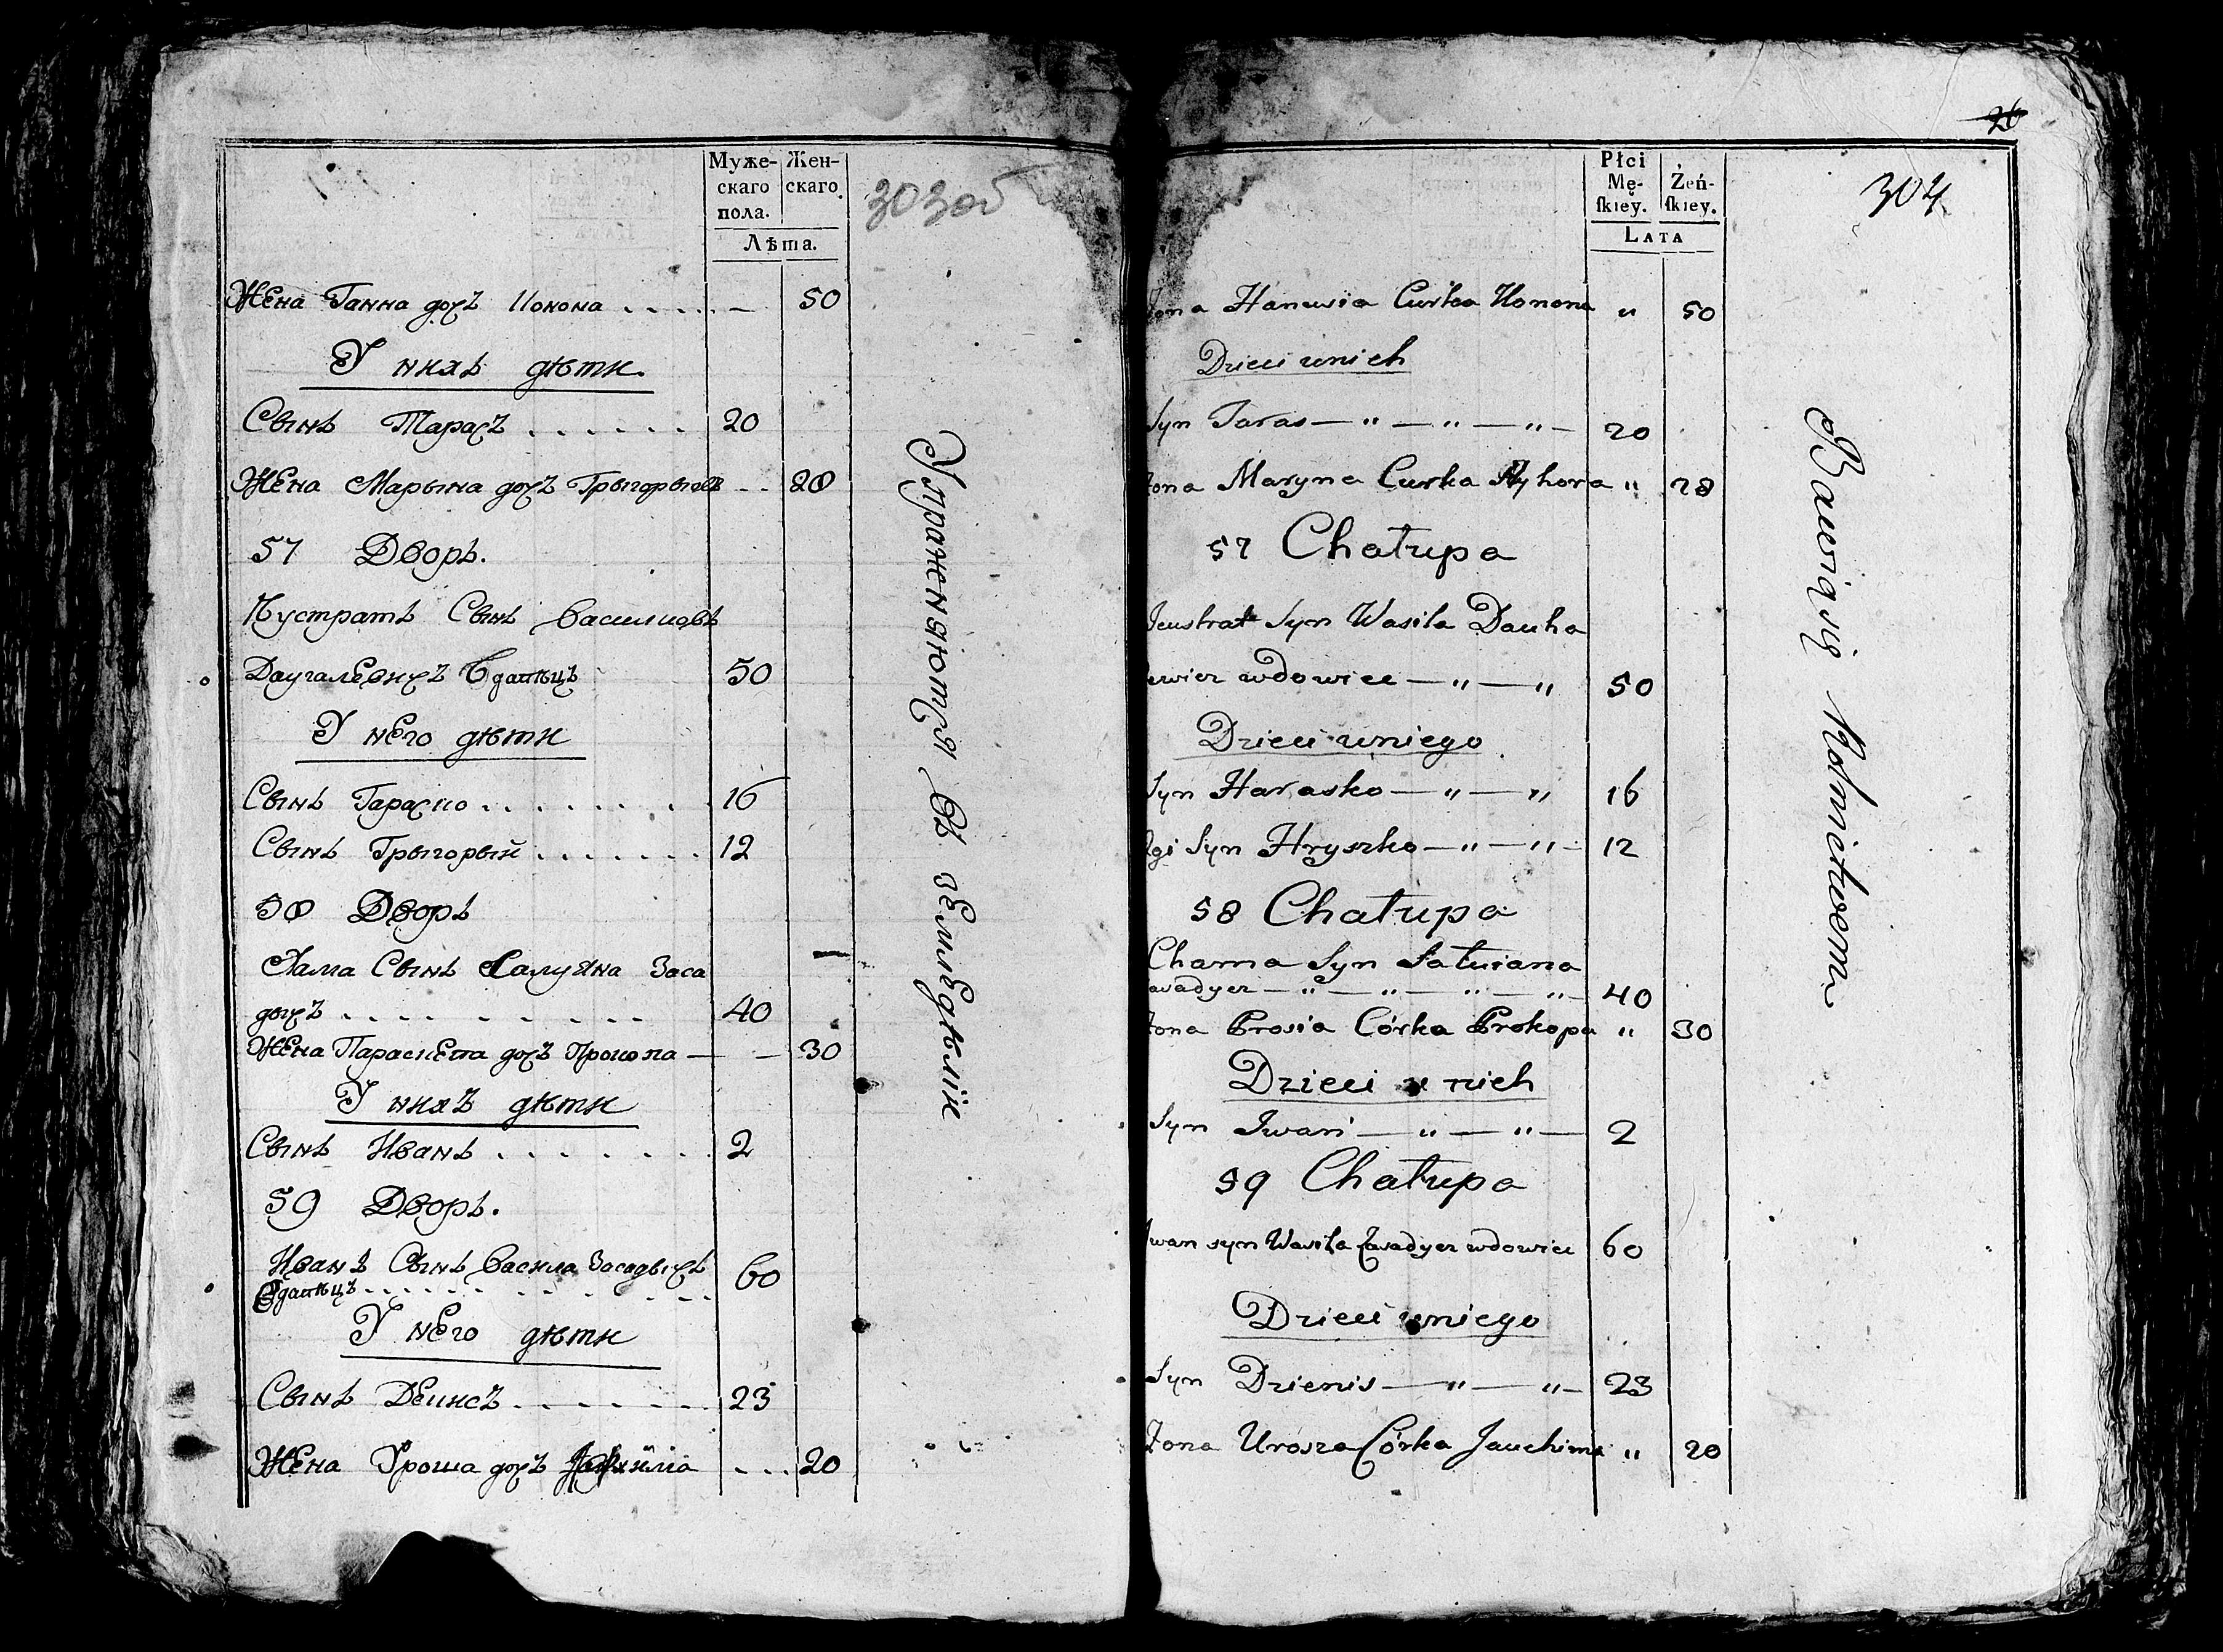 Муже-
скаго
пола.
Жен-
скаго.
Лѣта.
303об
Жена Ганна дочъ Конона . . . . . — 50
У нихъ дѣти.
Сынъ Тарасъ . . . . . . 20
Жена Марына дочъ Грыгорыева . . 28
57 Дворъ.
Іустратъ Сынъ Василиовъ
Даугалевичъ Вдавѣцъ 50
У него дѣти
Сынъ Гараско . . . . . . . 16
Сынъ Грыгорый . . . . . . . 12
58 Дворъ
Хама Сынъ Салуяна Заса
дычъ . . . . . . . . . . 40
Жена Параскета дочъ Прокопа — — 30
У нихъ дѣти
Сынъ Иванъ . . . . . . . 2
59 Дворъ.
Иванъ Сынъ Васила Засадычъ 60
Вдавѣцъ . . . . . . . . . . .
У него дѣти
Сынъ Денисъ . . . . . . . 23
Жена Уроша дочъ . . . 20
Упражняются въ земледѣліи
26
Płci
Mę-
ſkiey.
Żeń-
ſkiey.
LATA
304
Żona Hanusia Curka Konona " 50
Dzieci u nich
Syn Taras — " — " — " — 20
Żona Maryna Curka Ryhora " 28
57 Chałupa
Jeustrat Syn Wasila Dauha
lewicz wdowiec — " — " 50
Dzieci u niego
Syn Harasko — " — " 16
2gi Syn Hryszko — " — " — 12
58 Chałupa
Chama Syn Sałuiana
asadycz — " — " — " — " — 40
Żona Prosia Córka Prokopa " 30
Dzieci u nich
Syn Jwan — " — " — 2
59 Chałupa
Jwan syn Wasila Zasadycz wdowiec 60
Dzieci u niego
Syn Dzienis — " — " — 23
Żona Urosza Córka Jauchima " 20
Bawiąsię Rolnictwem